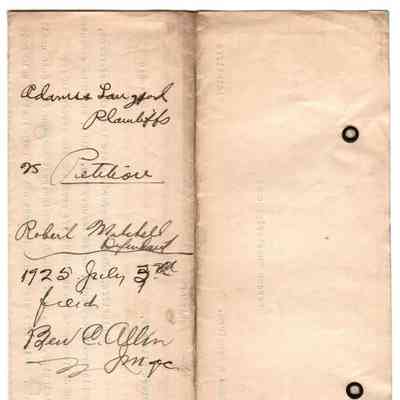 Adams & Langford
Plaintiffs
vs Petition
Robert Mitchell
Defendant
1925 July 3rd
filed
Ben C. Allin